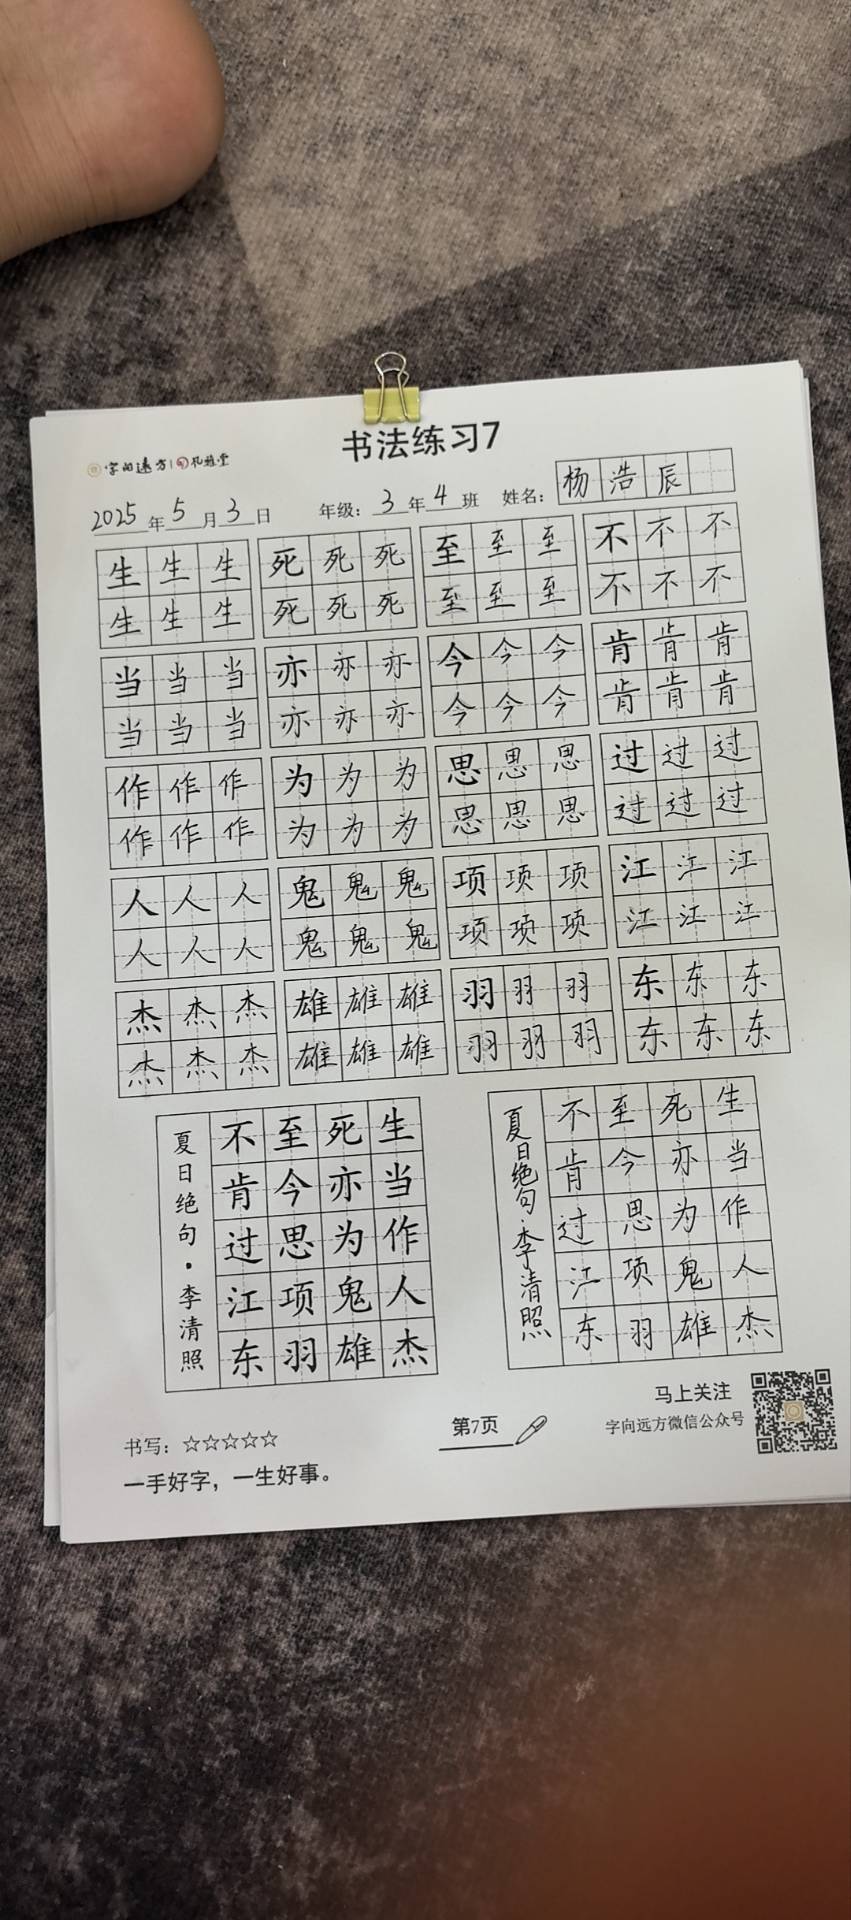 书法练习7
字向远方 孔雅堂
2025年5月3日 年级：3年4班 姓名：杨浩辰
生生生 死死死 至至至 不不不
生生生 死死死 至至至 不不不
当当当 亦亦亦 今今今 肯肯肯
当当当 亦亦亦 今今今 肯肯肯
作作作 为为为 思思思 过过过
作作作 为为为 思思思 过过过
人人人 鬼鬼鬼 项项项 江江江
人人人 鬼鬼鬼 项项项 江江江
杰杰杰 雄雄雄 羽羽羽 东东东
杰杰杰 雄雄雄 羽羽羽 东东东
生当作人杰
死亦为鬼雄
至今思项羽
不肯过江东
夏日绝句·李清照
生当作人杰
死亦为鬼雄
至今思项羽
不肯过江东
夏日绝句·李清照
书写：☆☆☆☆☆
一手好字，一生好事。
第7页
马上关注
字向远方微信公众号